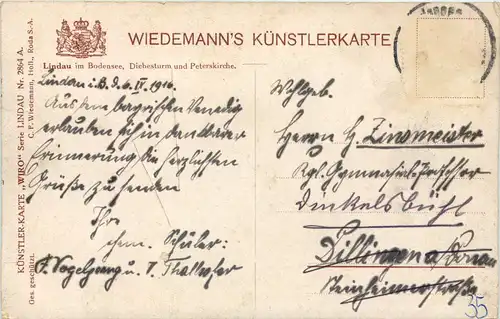 WIEDEMANN'S KÜNSTLERKARTE
Lindau im Bodensee, Dichesturm und Peterskirche.
Lindau i.B. d. 6. IV. 1910.
Aus dem bayrischen Venedig
erlauben sich in dankbarer
Erinnerung die herzlichsten
Grüße zu senden
Ihre
ehem. Schüler:
Vogelgsang u. T. Thalhofer
Wohlgeb.
Herrn H. Zinsmeister
Kgl. Gymnasial-Professor
Dinkelsbühl
Dillingen a/Donau
Steinheimerstraße
35
KÜNSTLER-KARTE „WIRO“ Serie LINDAU Nr. 2864 A.
C. F. Wiedemann, Hofl., Roda S.-A.
Ges. geschützt.